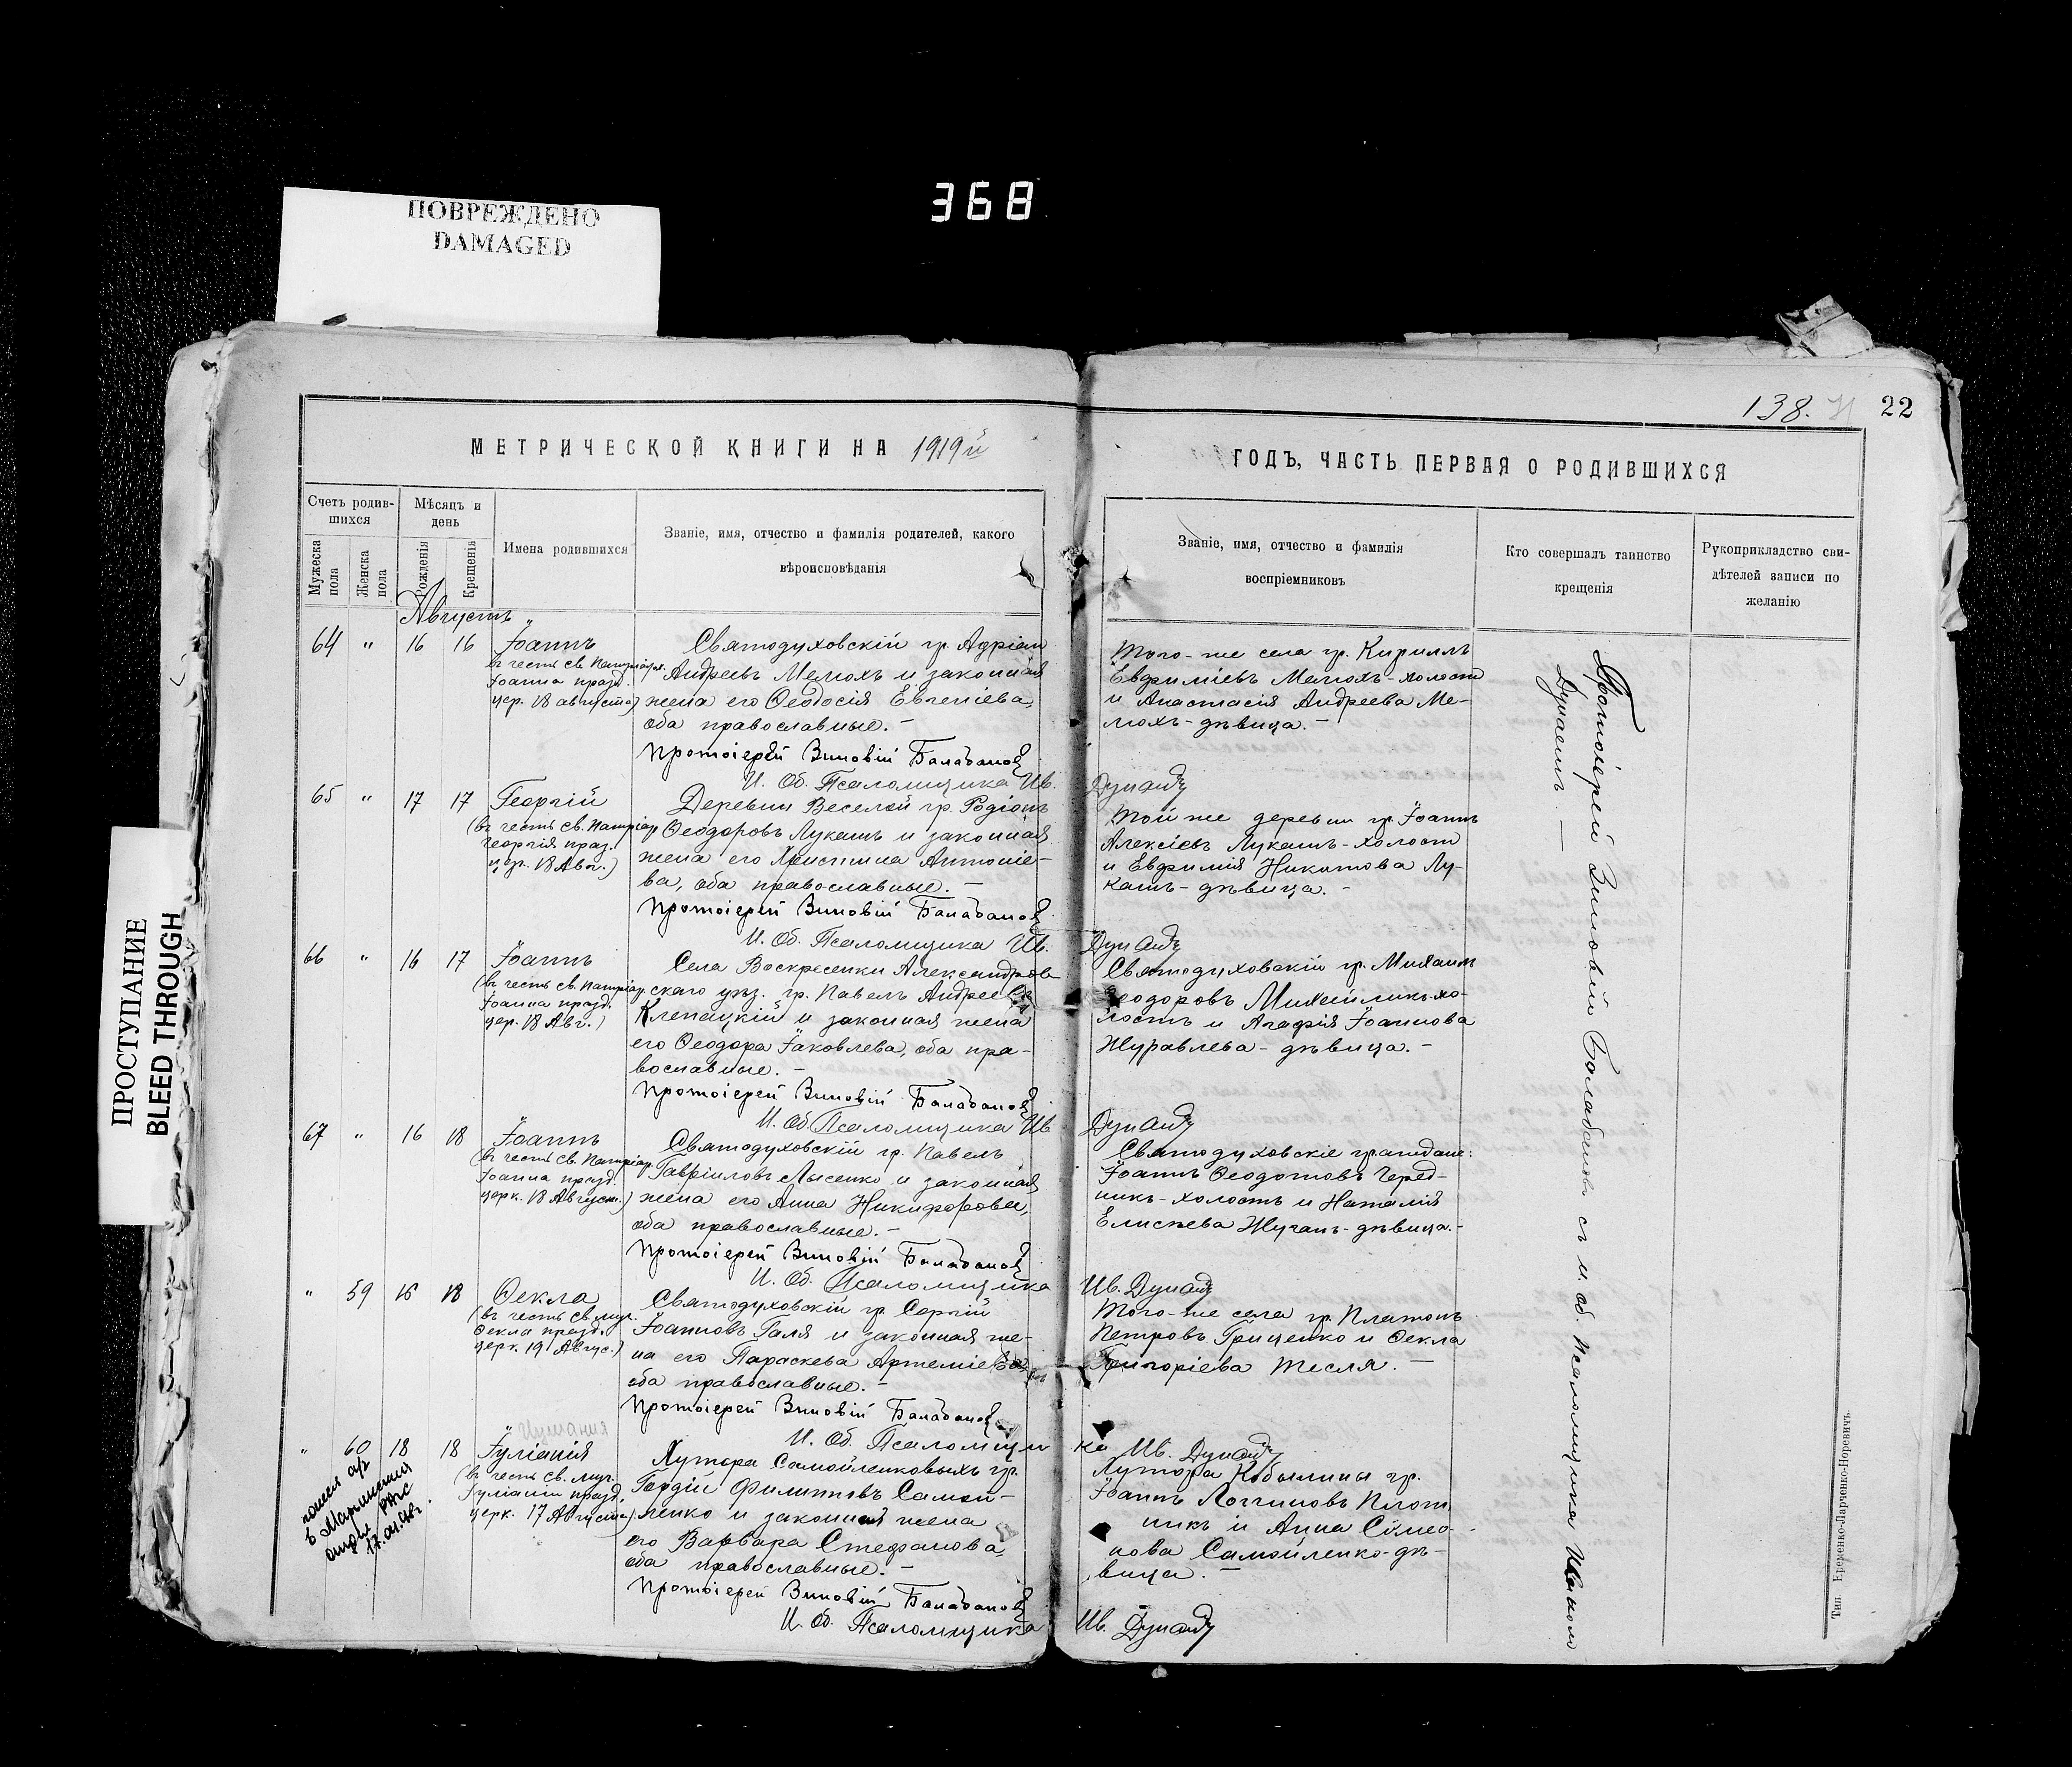 368
ПОВРЕЖДЕНО
DAMAGED
ПРОСТУПАНИЕ
BLEED THROUGH
138.
22
МЕТРИЧЕСКОЙ КНИГИ НА 1919й
ГОДЪ, ЧАСТЬ ПЕРВАЯ О РОДИВШИХСЯ
Счетъ родив-
шихся
Мужеска
пола
Женска
пола
Мѣсяцъ и
день
Рожденія
Крещенія
Имена родившихся
Званіе, имя, отчество и фамилія родителей, какого
вѣроисповѣданія
Званіе, имя, отчество и фамилія
воспріемниковъ
Кто совершалъ таинство
крещенія
Рукоприкладство сви-
дѣтелей записи по
желанію
Августъ
64 " 16 16 Іоаннъ
въ честь св. Патріарх.
Іоанна празд.
цер. 18 августа)
Святодуховскій гр. Адріан
Андреевъ Мелюхъ и законная
жена его Ѳеодосія Евгеніева,
оба православные. –
Протоіерей Зиновій Балабановъ
И. Об. Псаломщика Ив.
Того-же села гр. Кириллъ
Евфиміевъ Мелюхъ-холостъ
и Анастасія Андреева Ме-
люхъ-дѣвица. –
65 " 17 17 Георгій
(въ честь св. Патріар
Георгія праз.
цер. 18 Авг.)
Деревни Веселой гр. Родіонъ
Ѳеодоровъ Лукашъ и законная
жена его Христина Антоніе-
ва, оба православные. –
Протоіерей Зиновій Балабановъ
И. Об. Псаломщика Ив.
Той же деревни гр. Іоаннъ
Алексіевъ Лукашъ-холост
и Евфимія Никитова Лу-
кашъ-дѣвица. –
66 " 16 17 Іоаннъ
(въ честь св. Патріар.
Іоанна празд.
цер. 18 Авг.)
Села Воскресенки Александров-
скаго уѣз. гр. Павелъ Андреевъ
Клепацкій и законная жена
его Ѳеодора Іаковлева, оба пра-
вославные. –
Протоіерей Зиновій Балабановъ
И. Об Псаломщика Ив
Святодуховскій гр. Михаилъ
Ѳеодоровъ Михайликъ-хо-
лостъ и Агафія Іоаннова
Журавлева-дѣвица. –
67 " 16 18 Іоаннъ
(въ честь св. Патріар.
Іоанна празд.
церк. 18 Август.)
Святодуховскій гр. Павелъ
Гавріиловъ Лысенко и законная
жена его Анна Никифорова,
оба православные. –
Протоіерей Зиновій Балабановъ
И. Об. Псаломщика
Святодуховскіе граждане:
Іоаннъ Ѳеодотовъ Черед-
никъ-холостъ и Наталія
Елисѣева Жуганъ-дѣвица. –
" 59 16 18 Ѳекла
(въ честь св. муч.
Ѳеклы празд.
церк. 19 Август.)
Святодуховскій гр. Сергій
Іоанновъ Галя и законная же-
на его Параскева Артеміева,
оба православные. –
Протоіерей Зиновій Балабановъ
И. Об. Псаломщи
Того-же села гр. Платонъ
Петровъ Гриценко и Ѳекла
Григоріева Тесля. –
" 60 18 18 Іуліанія
(въ честь св. муч.
Іуліаніи празд.
церк. 17 Августа)
Хутора Самойленковыхъ гр.
Гордій Филипповъ Самой-
ленко и законная жена
его Варвара Стефанова,
оба православные. –
Протоіерей Зиновій Балабановъ
И. Об. Псаломщика
ка Ив.
Хутора Кобылины гр.
Іоаннъ Логгиновъ Плот
никъ и Анна Сімео-
нова Самойленко-дѣ-
вица. –
Ив.
17.01.
Протоіерей Зиновій Балабановъ съ и. об. псаломщика
Тип. Еременко-Ларченко-Норевичъ.